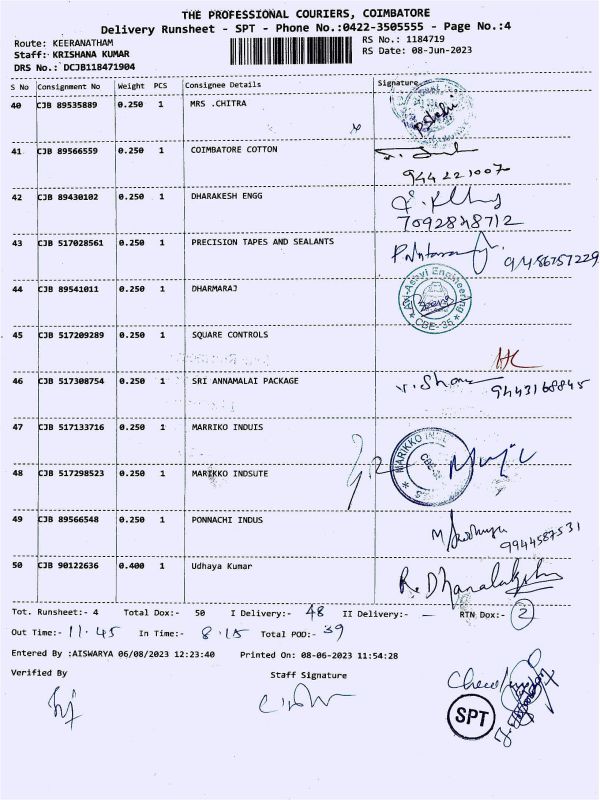 THE PROFESSIONAL COURIERS, COIMBATORE
Delivery Runsheet - SPT - Phone No.:0422-3505555 - Page No.:4
Route: KEERANATHAM
RS No.: 1184719
Staff: KRISHANA KUMAR
RS Date: 08-Jun-2023
DRS No.: DCJB118471904
S No Consignment No Weight PCS Consignee Details Signature
40 CJB 89535889 0.250 1 MRS .CHITRA
41 CJB 89566559 0.250 1 COIMBATORE COTTON
944221007
42 CJB 89430102 0.250 1 DHARAKESH ENGG
7092848712
43 CJB 517028561 0.250 1 PRECISION TAPES AND SEALANTS
9486757229
44 CJB 89541011 0.250 1 DHARMARAJ
CBE-35
45 CJB 517209289 0.250 1 SQUARE CONTROLS
46 CJB 517308754 0.250 1 SRI ANNAMALAI PACKAGE
9443168845
47 CJB 517133716 0.250 1 MARRIKO INDUIS
MARIKKO
48 CJB 517298523 0.250 1 MARIKKO INDSUTE
49 CJB 89566548 0.250 1 PONNACHI INDUS
9944587531
50 CJB 90122636 0.400 1 Udhaya Kumar
R. Dhanalakshmi
Tot. Runsheet:- 4 Total Dox:- 50 I Delivery:- 48 II Delivery:- — RTN Dox:- 2
Out Time:- 11.45 In Time:- 8.15 Total POD:- 39
Entered By :AISWARYA 06/08/2023 12:23:40 Printed On: 08-06-2023 11:54:28
Verified By Staff Signature
SPT